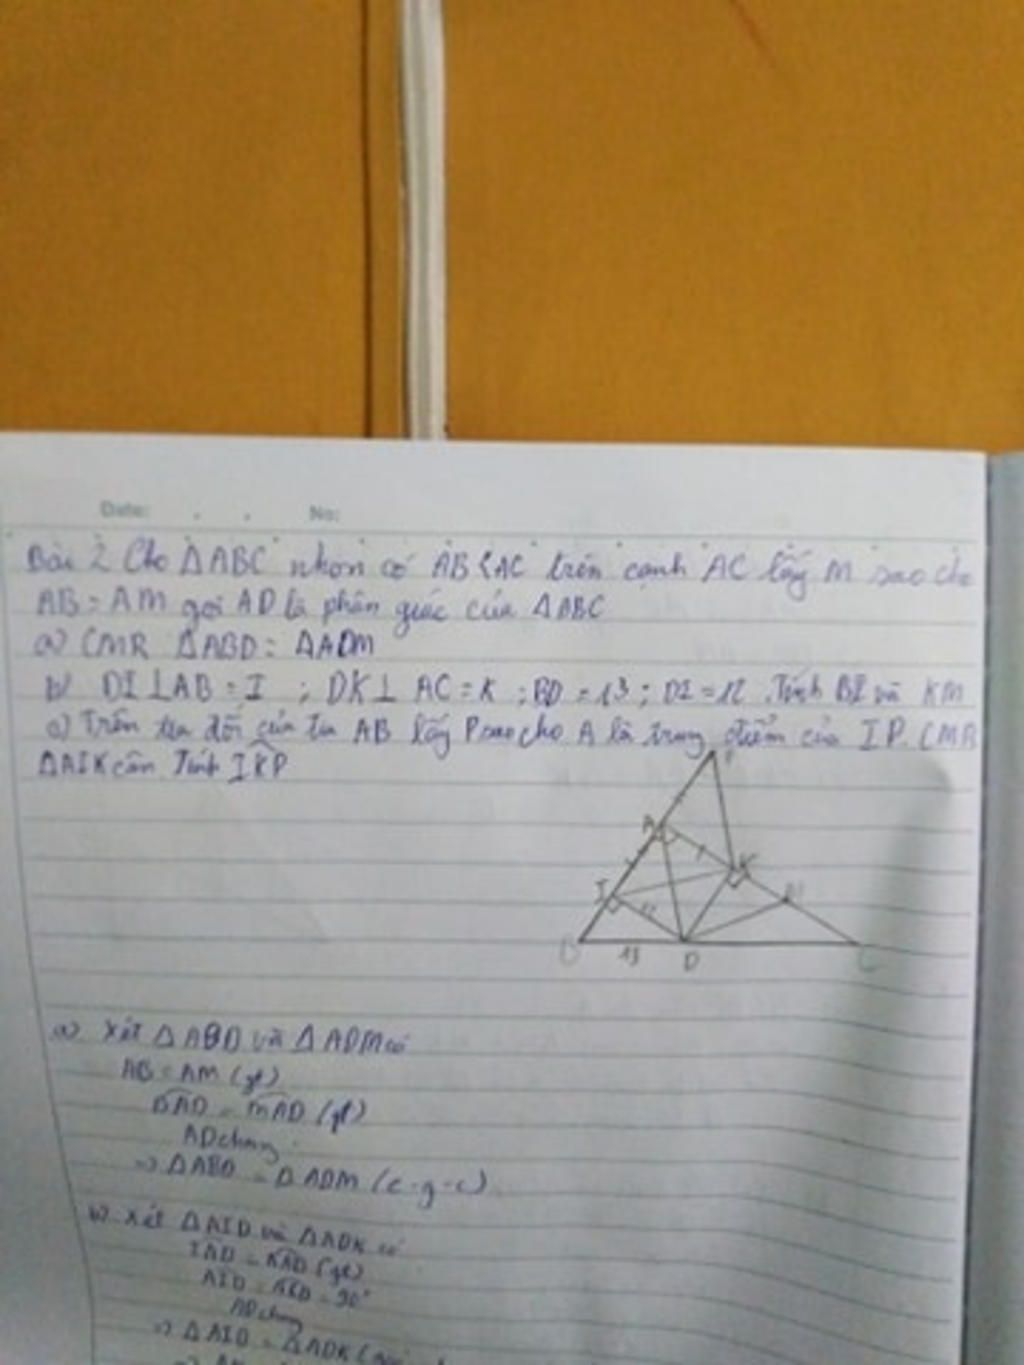 Date: . . No:
Bài 2 Cho ΔABC nhọn có AB<AC trên cạnh AC lấy M sao cho
AB = AM gọi AD là phân giác của ΔABC
a) CMR ΔABD = ΔADM
b) DI⊥AB = I ; DK⊥ AC = K ; BD = 13 ; DI = 12 . Tính BI và KM
c) Trên tia đối của tia AB lấy P sao cho A là trung điểm của IP. CMR
ΔAIK cân Tính IKP
P
A
K
I
M
12
B 13 D C
a) Xét ΔABD và ΔADM có
AB = AM (gt)
BAD = MAD (gt)
AD chung
=> ΔABD = ΔADM (c-g-c)
b) Xét ΔAID và ΔADK có
IAD = KAD (gt)
AID = AKD = 90°
AD chung
=> ΔAID = ΔADK